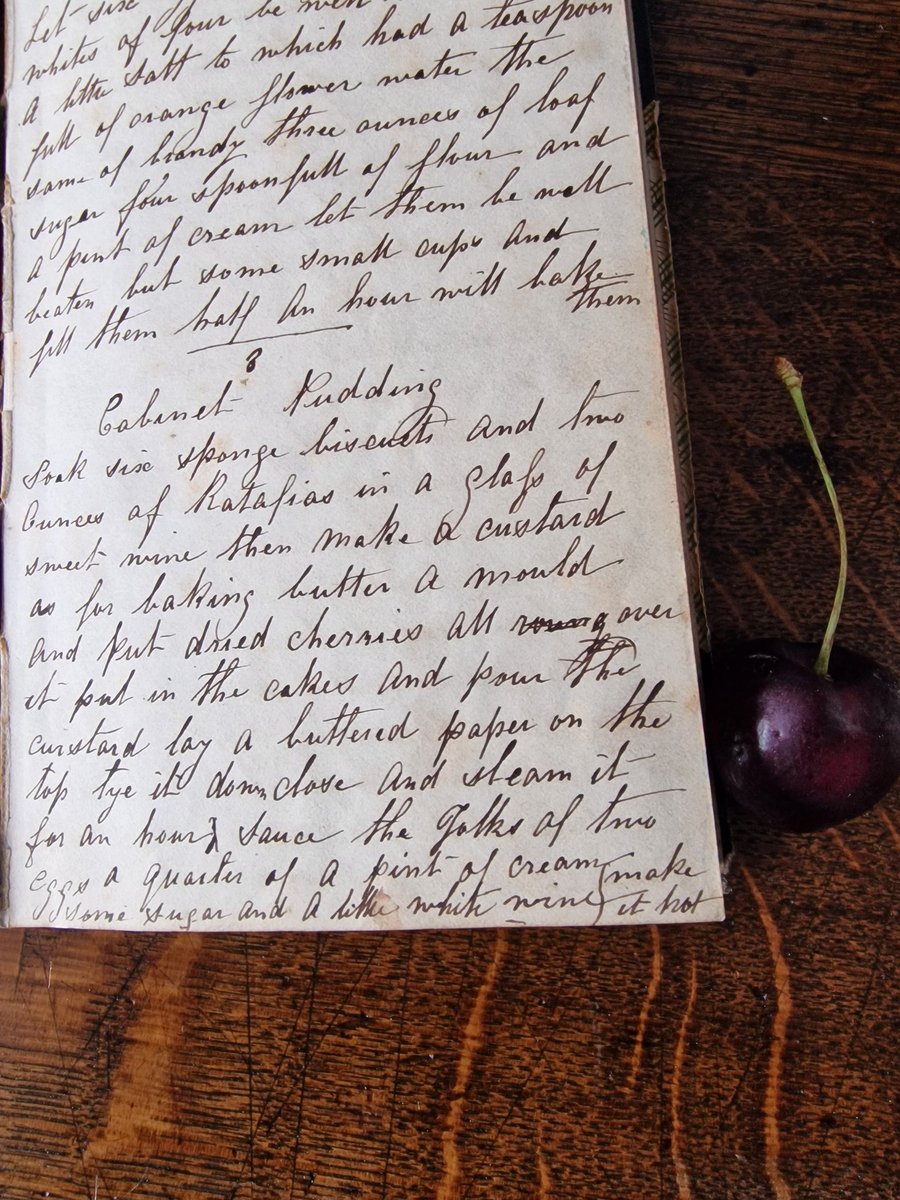 Let six
whites of four be well
A little salt to which had a teaspoon
full of orange flower water the
same of brandy three ounces of loaf
sugar four spoonfull of flour and
a pint of cream let them be well
beaten but some small cups and
fill them half An hour will bake
them
8
Cabinet Pudding
Soak six sponge biscuits and two
Ounces of Ratafias in a glass of
sweet wine then make a custard
as for baking butter A mould
And put dried cherries all over
it put in the cakes And pour the
curstard lay a buttered paper on the
top tye it down close And steam it
for an hour sauce the Yolks of two
eggs a quarter of A pint of cream
some sugar and A little white wine
make
it hot